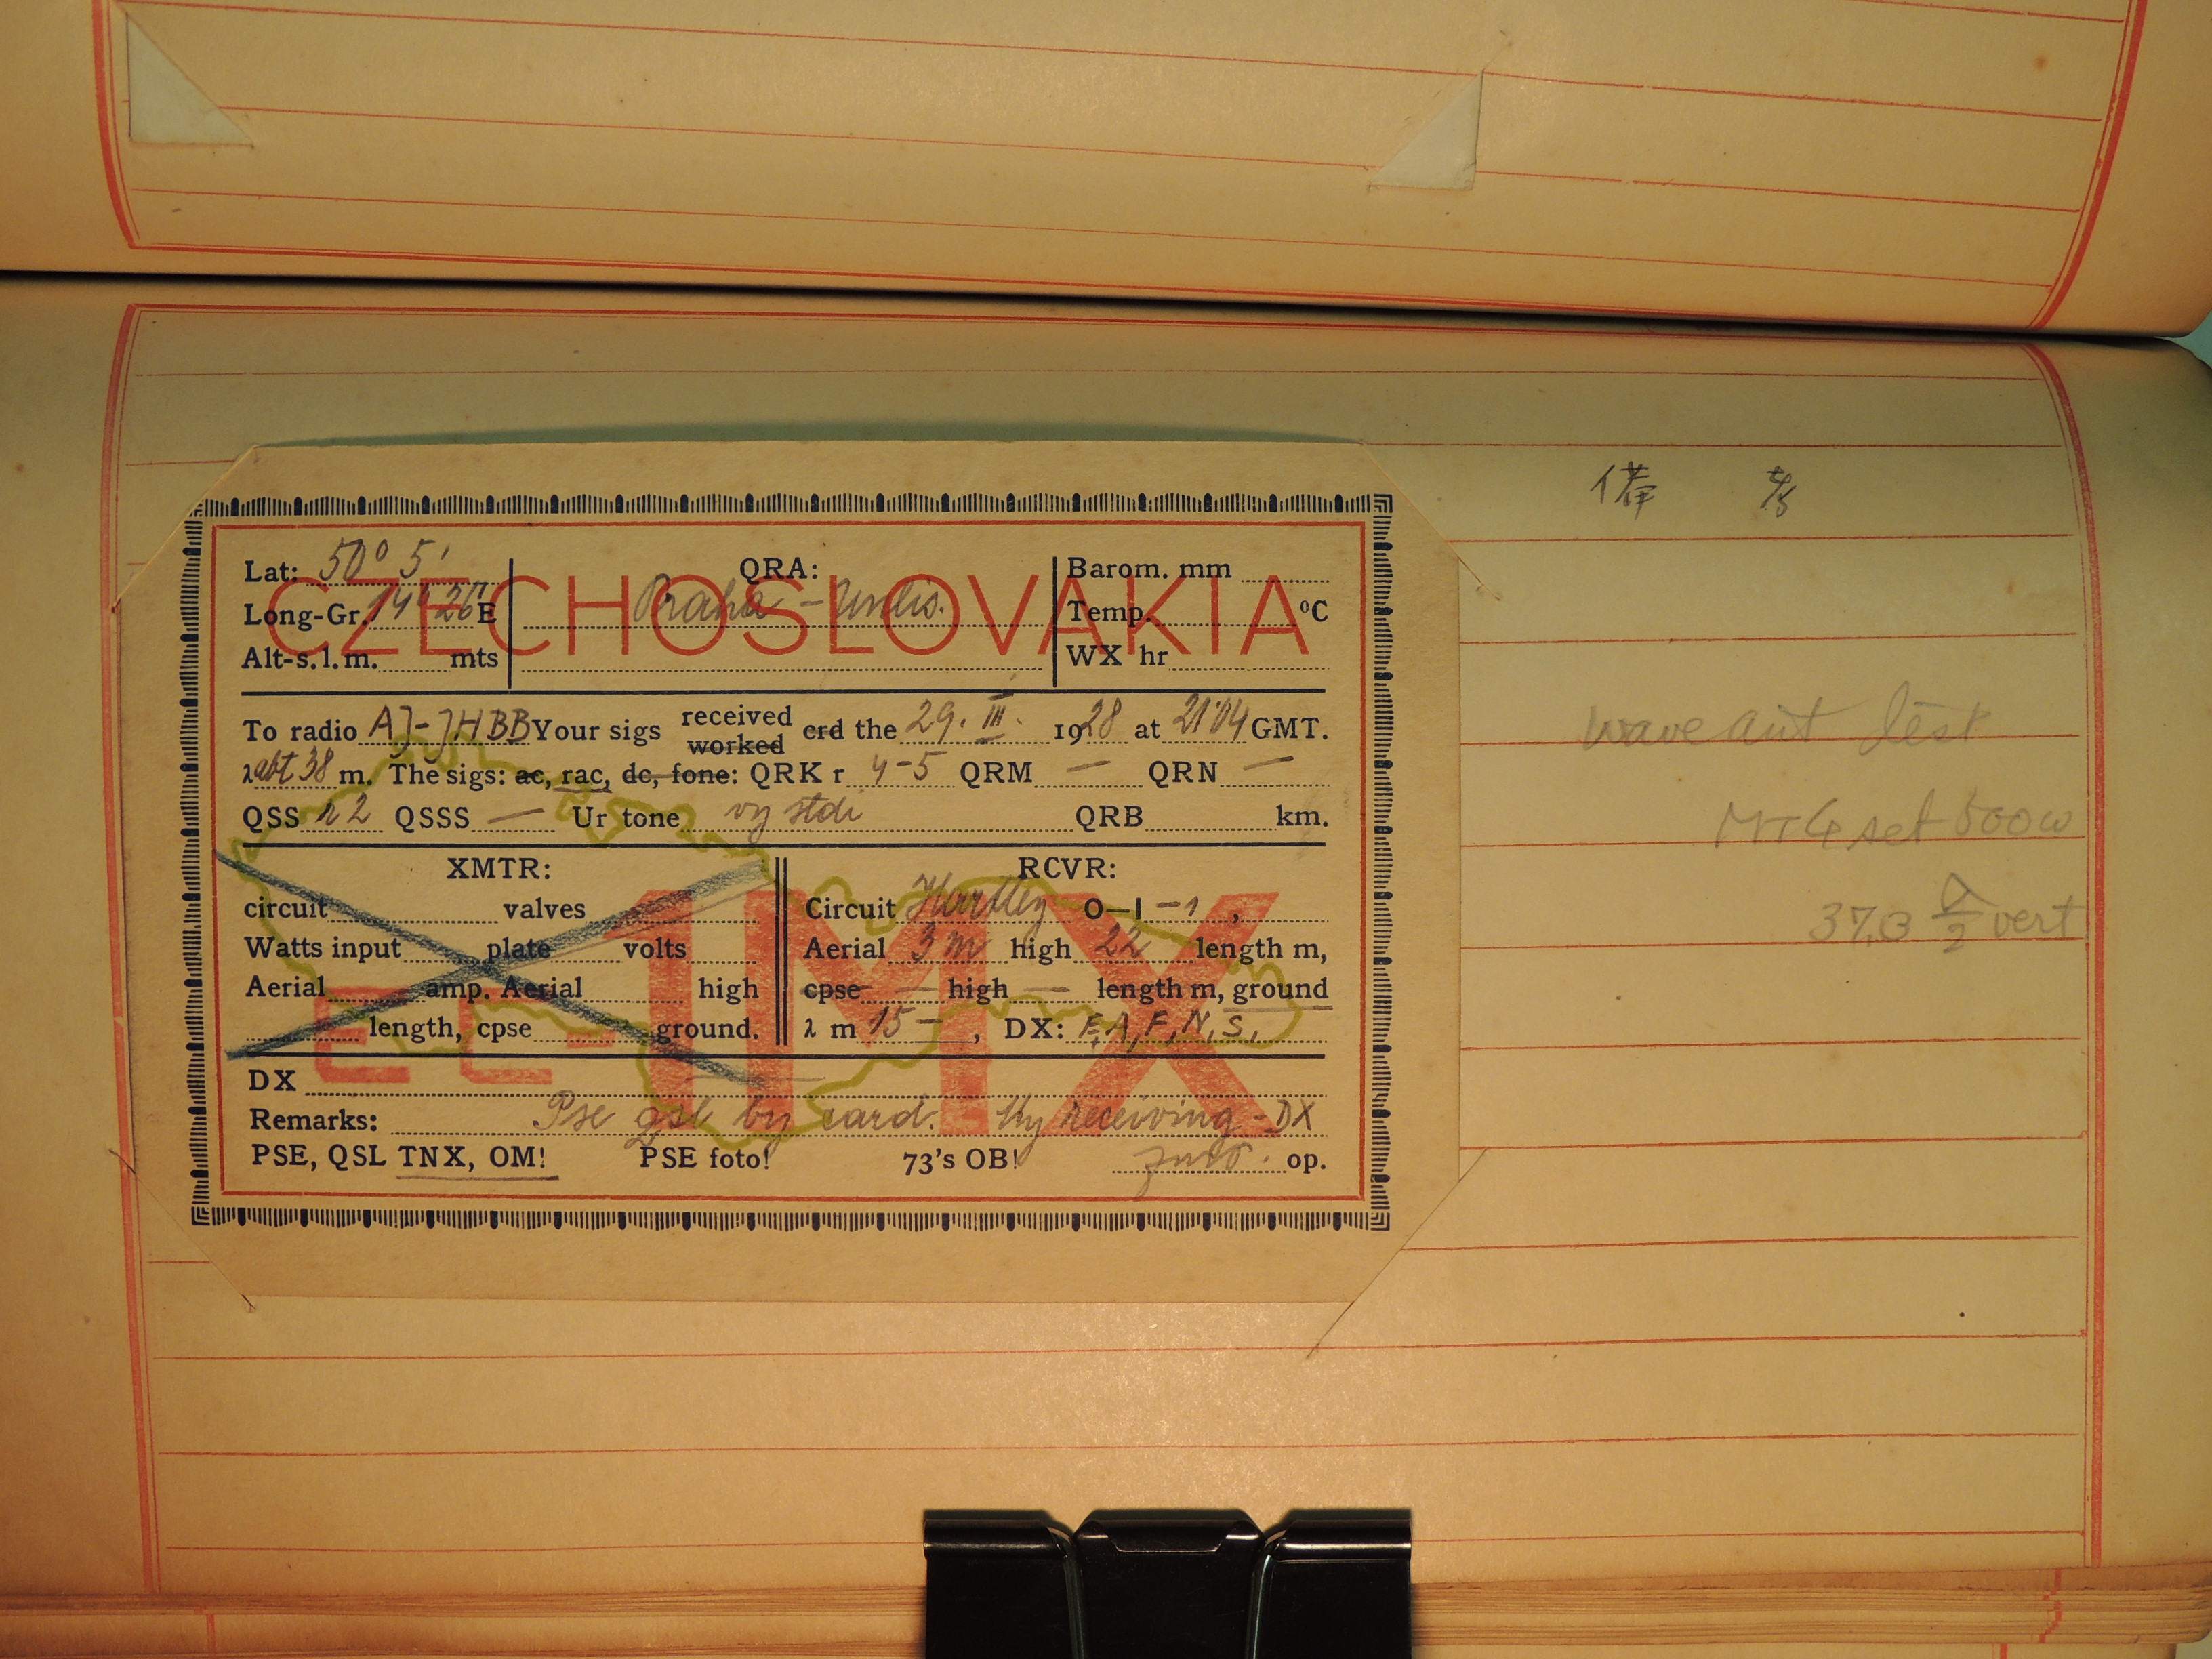 CZECHOSLOVAKIA
EC-1MX
Lat: 50° 5'
Long-Gr. 14° 26' E
Alt-s.l.m. mts
QRA:
Praha
Barom. mm
Temp. °C
WX hr
To radio AJ-JHBB Your sigs received worked crd the 29. III. 1928 at 21'04 GMT.
λ abt 38 m. The sigs: ac, rac, dc, fone: QRK r 4-5 QRM — QRN —
QSS r2 QSSS — Ur tone vy stdi QRB km.
XMTR:
circuit valves
Watts input plate volts
Aerial amp. Aerial high
length, cpse ground.
RCVR:
Circuit Hartley 0-1 -1 ,
Aerial 3 m high 22 length m,
cpse — high — length m, ground
λ m 15 — , DX: E, A, F, N, S,
DX
Remarks: Pse qsl by card. My receiving - DX
PSE, QSL TNX, OM! PSE foto! 73's OB! op.
備 考
wave ant test
set 500w
37.3 λ/2 vert